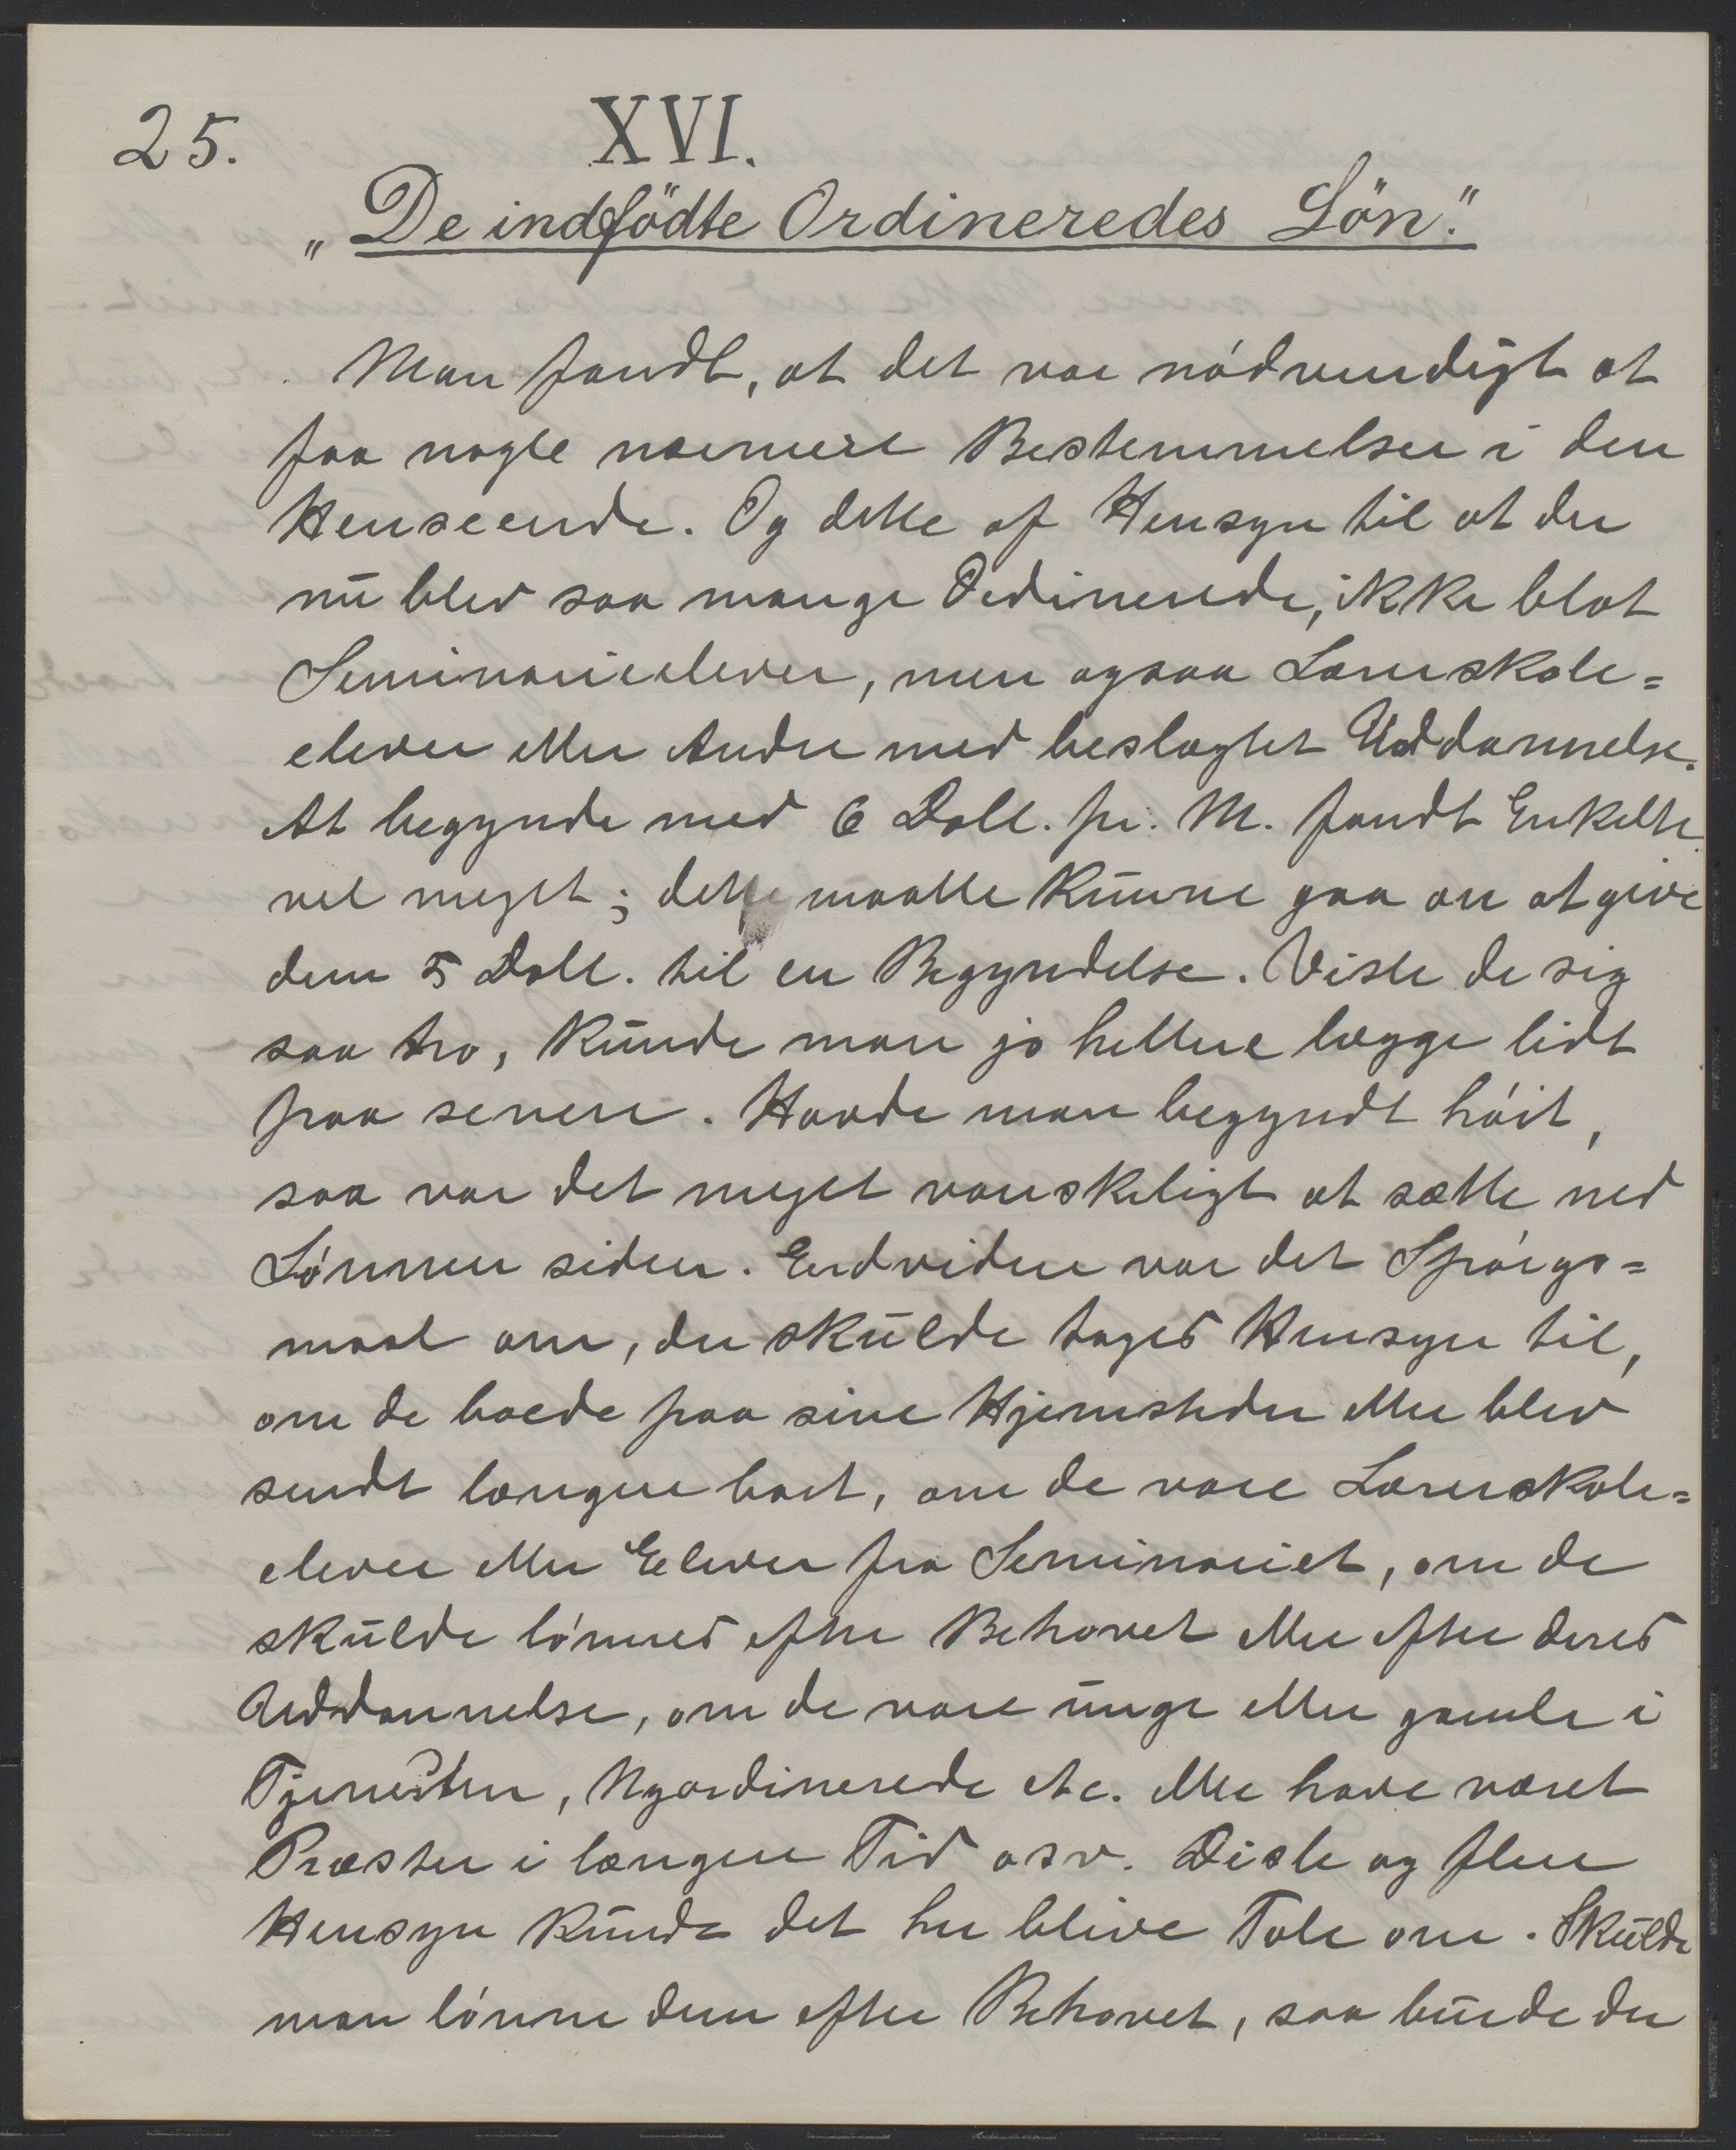 25.
XVI.
„De indfödte Ordineredes Lön."
Man fandt, at det var nódvendigt at
faa nogle nærmere Bestemmelser i den
Henseende. Og dette af Hensyn til at der
nu blev saa mange Ordinerede, ikke blot
Seminarieelever, men ogsaa Lærerskole=
elever eller Andre med beslægtet Uddannelse.
At begynde med 6 Doll. pr. M. fandt Enkelte
vel meget; dette maatte kunne gaa an at give
dem 5 Doll. til en Begyndelse. Viste de sig
saa tro, kunde man jo hellere lægge lidt
paa senere. Havde man begyndt hóit,
saa var det meget vanskeligt at sætte ned
Lónnen siden. Endvidere var det Spórgs=
maal om, der skulde tages Hensyn til,
om de boede paa sine Hjemsteder eller blev
sendt længere bort, om de vare Lærerskole=
elever eller Elever fra Seminariet, om de
skulde lónnes efter Behovet eller efter deres
Uddannelse, om de vare unge eller gamle i
Tjenesten, Nyordinerede etc. eller have været
Præster i længere Tid osv. Disse og flere
Hensyn kunde det her blive Tale om. Skulde
man lónne dem efter Behovet, saa burde der